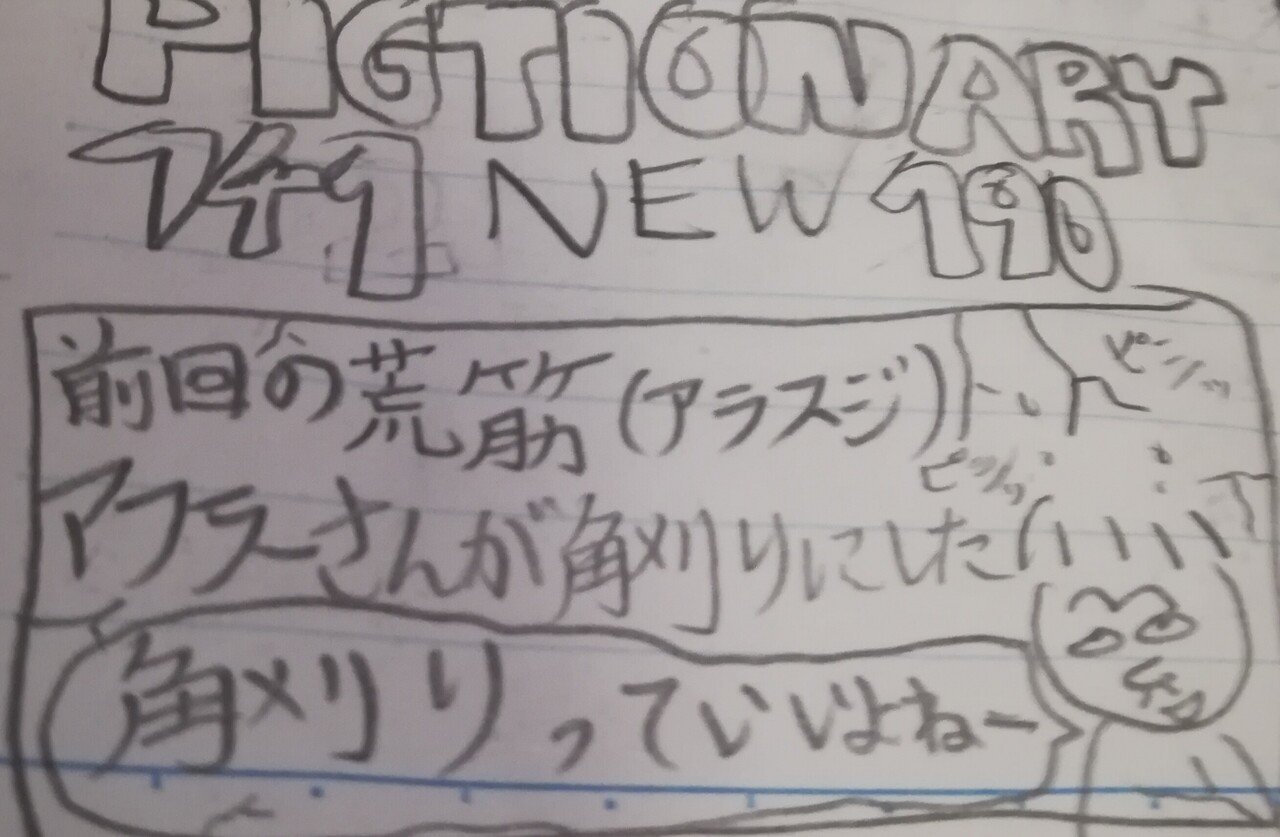 PICTIONARY
741 NEW 190
前回の荒筋(アラスジ)
ピシッ
ピシッ
アフラーさんが角刈りにした
角刈りっていいよねー